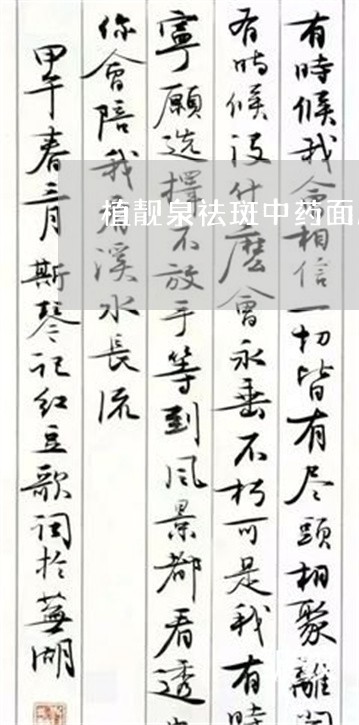 有時候我会相信一切皆有尽頭相聚離開
有時候没什麽會永垂不朽可是我有時
寧願选擇不放手等到风景都看透
你會陪我看溪水長流
甲午春三月斯琴记红豆歌词於蕪湖
植靓泉祛斑中药面